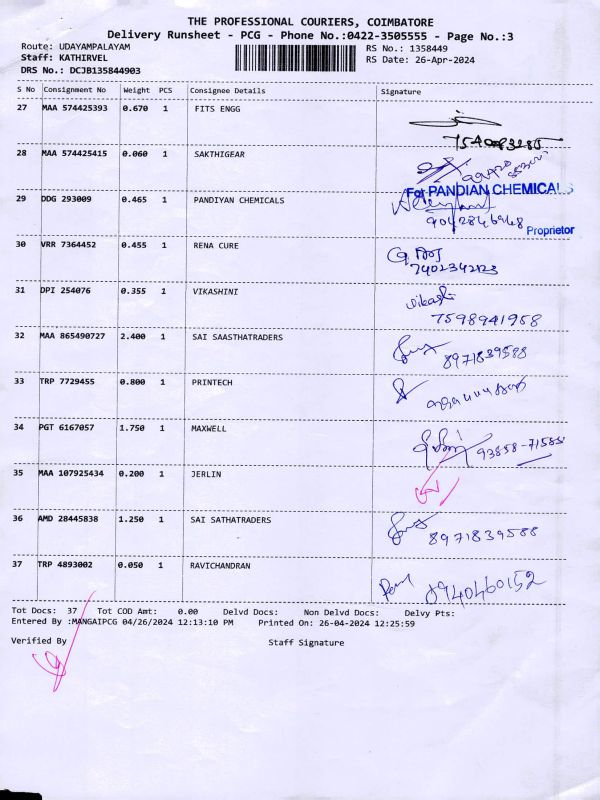 THE PROFESSIONAL COURIERS, COIMBATORE
Delivery Runsheet - PCG - Phone No.:0422-3505555 - Page No.:3
Route: UDAYAMPALAYAM RS No.: 1358449
Staff: KATHIRVEL RS Date: 26-Apr-2024
DRS No.: DCJB135844903
S No Consignment No Weight PCS Consignee Details Signature
27 MAA 574425393 0.670 1 FITS ENGG
28 MAA 574425415 0.060 1 SAKTHIGEAR
For PANDIAN CHEMICALS
29 DDG 293009 0.465 1 PANDIYAN CHEMICALS
9042846948
Proprietor
30 VRR 7364452 0.455 1 RENA CURE
7402342123
31 DPI 254076 0.355 1 VIKASHINI
vikashi
7598941958
32 MAA 865490727 2.400 1 SAI SAASTHATRADERS
8971839588
33 TRP 7729455 0.800 1 PRINTECH
34 PGT 6167057 1.750 1 MAXWELL
93858-71588
35 MAA 107925434 0.200 1 JERLIN
36 AMD 28445838 1.250 1 SAI SATHATRADERS
8971839588
37 TRP 4893002 0.050 1 RAVICHANDRAN
8940460152
Tot Docs: 37 Tot COD Amt: 0.00 Delvd Docs: Non Delvd Docs: Delvy Pts:
Entered By :MANGAIPCG 04/26/2024 12:13:10 PM Printed On: 26-04-2024 12:25:59
Verified By Staff Signature